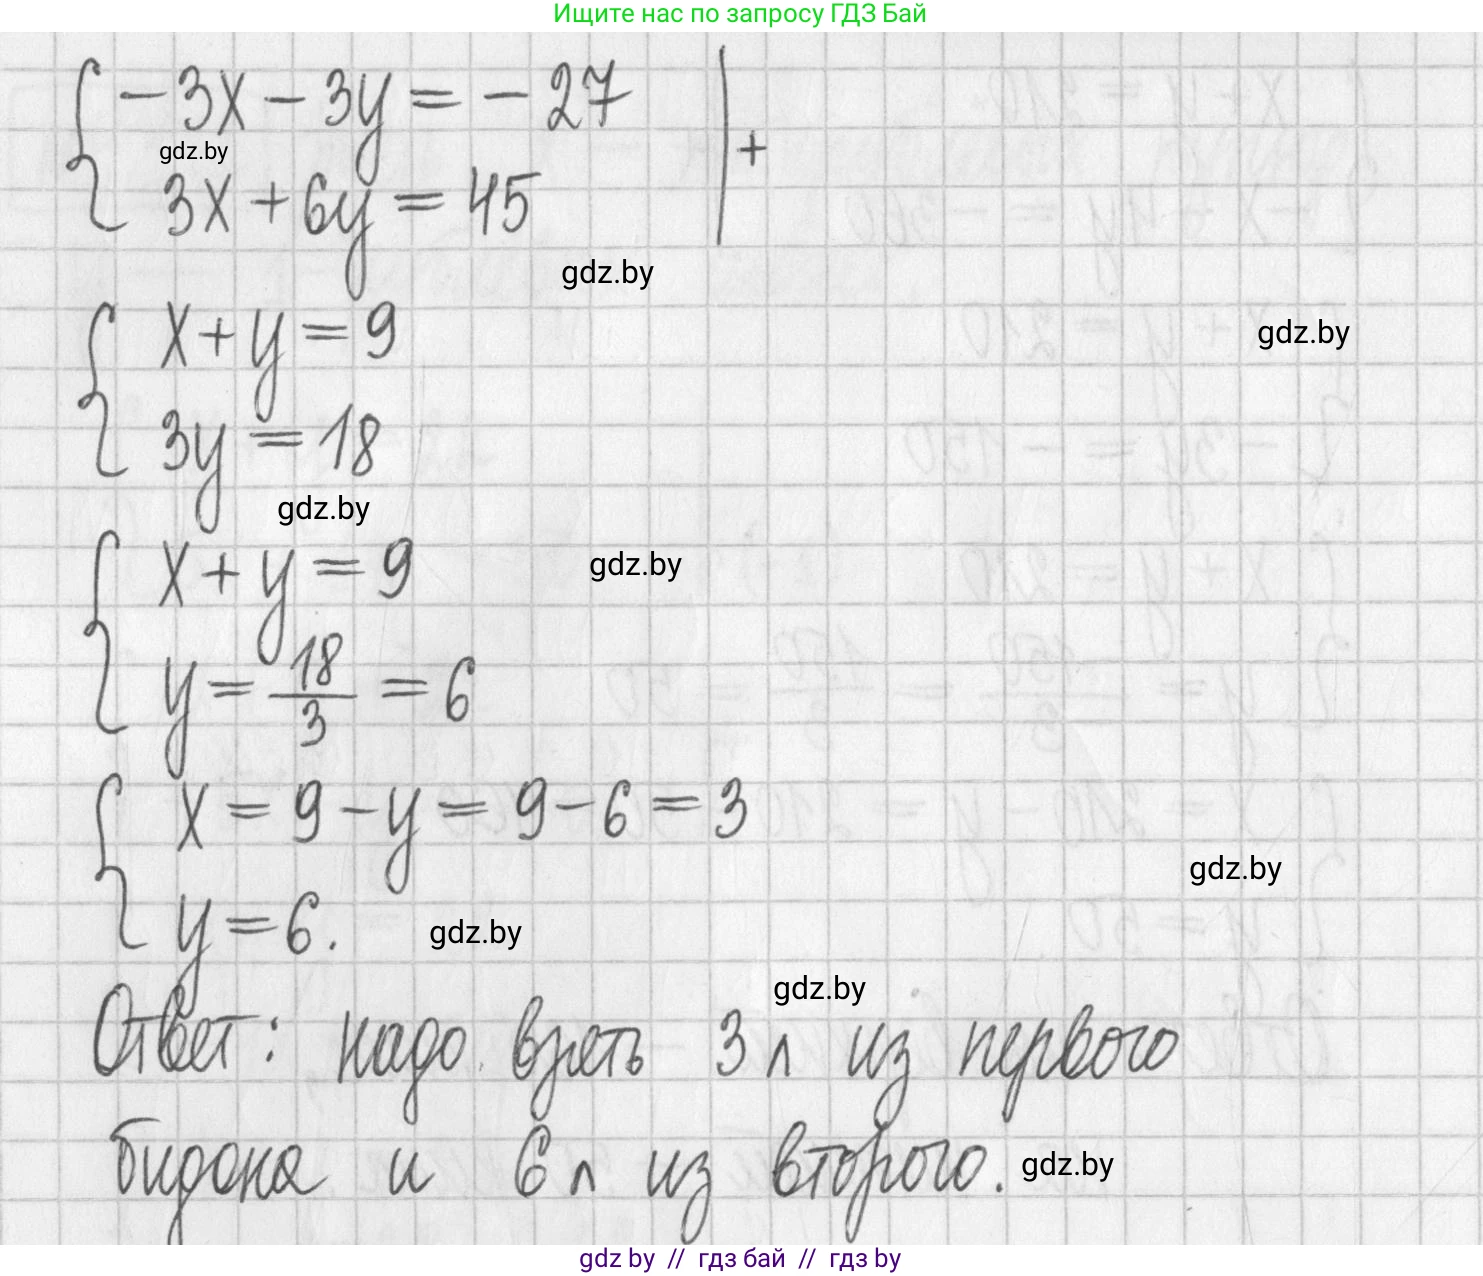 Ищите нас по запросу ГДЗ Бай
-3x - 3y = -27 | +
gdz.by
3x + 6y = 45
gdz.by
x + y = 9
gdz.by
3y = 18
gdz.by
x + y = 9
gdz.by
y = 18/3 = 6
x = 9 - y = 9 - 6 = 3
gdz.by
y = 6.
gdz.by
gdz.by
Ответ: надо взять 3 л из первого
бидона и 6 л из второго.
gdz.by
gdz by // гдз бай // гдз by